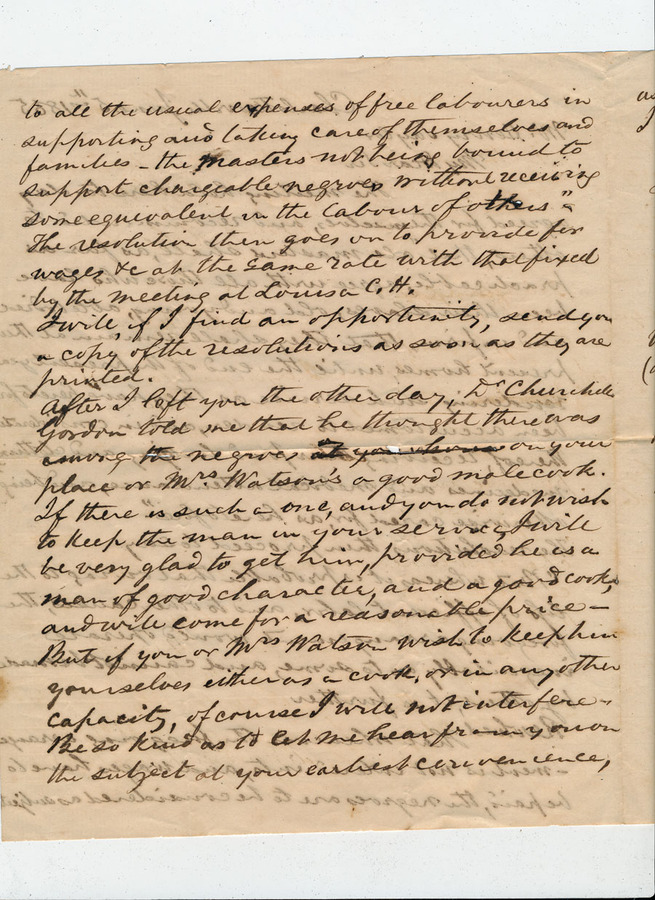 to all the usual expenses of free labourers in
supporting and taking care of themselves and
families - the masters not being bound to
support chargeable negroes without receiving
some equivalent in the labour of others"-
The resolution then goes on to provide for
wages &c at the same rate with that fixed
by the meeting at Louisa C. H.
I will, if I find an opportunity, send you
a copy of the resolutions as soon as they are
printed.
After I left you the other day, Dr Churchill
Gordon told me that he thought there was
among the negroes on your
place or Mrs. Watson's a good male cook.
If there is such a one, and you do not wish
to keep the man in your service, I will
be very glad to get him, provided he is a
man of good character, and a good cook,
and will come for a reasonable price -
But if you or Mrs Watson wish to keep him
yourselves either as a cook, or in any other
capacity, of course I will not interfere -
Be so kind as to let me hear from you on
the subject at your earliest convenience,